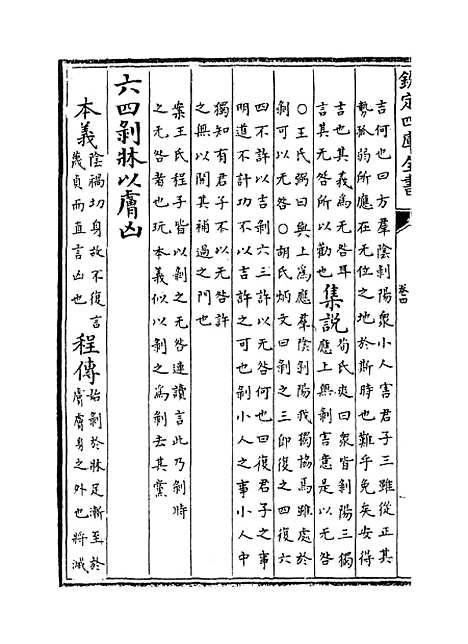 欽定四庫全書
卷四
吉何也曰方羣陰剥陽衆小人害君子三雖從正其
勢孤弱所應在无位之地於斯時也難乎免矣安得
吉也其義為无咎耳
言其无咎所以勸也
集說
荀氏爽曰衆皆剥陽三獨
應上无剥害意是以无咎
○王氏弼曰與上為應羣陰剥陽我獨協焉雖處於
剥可以无咎○胡氏炳文曰剥之三即復之四復六
四不許以吉剥六三許以无咎何也曰復君子之事
明道不計功不以吉許之可也剥小人之事小人中
獨知有君子不以无咎許
之无以開其補過之門也
案王氏程子皆以剥之无咎連讀言此乃剥時
之无咎者也玩本義似以剥之為剥去其黨
六四剥牀以膚凶
本義
陰禍切身故不復言
蔑貞而直言凶也
程傳
始剥於牀足漸至於
膚膚身之外也將滅